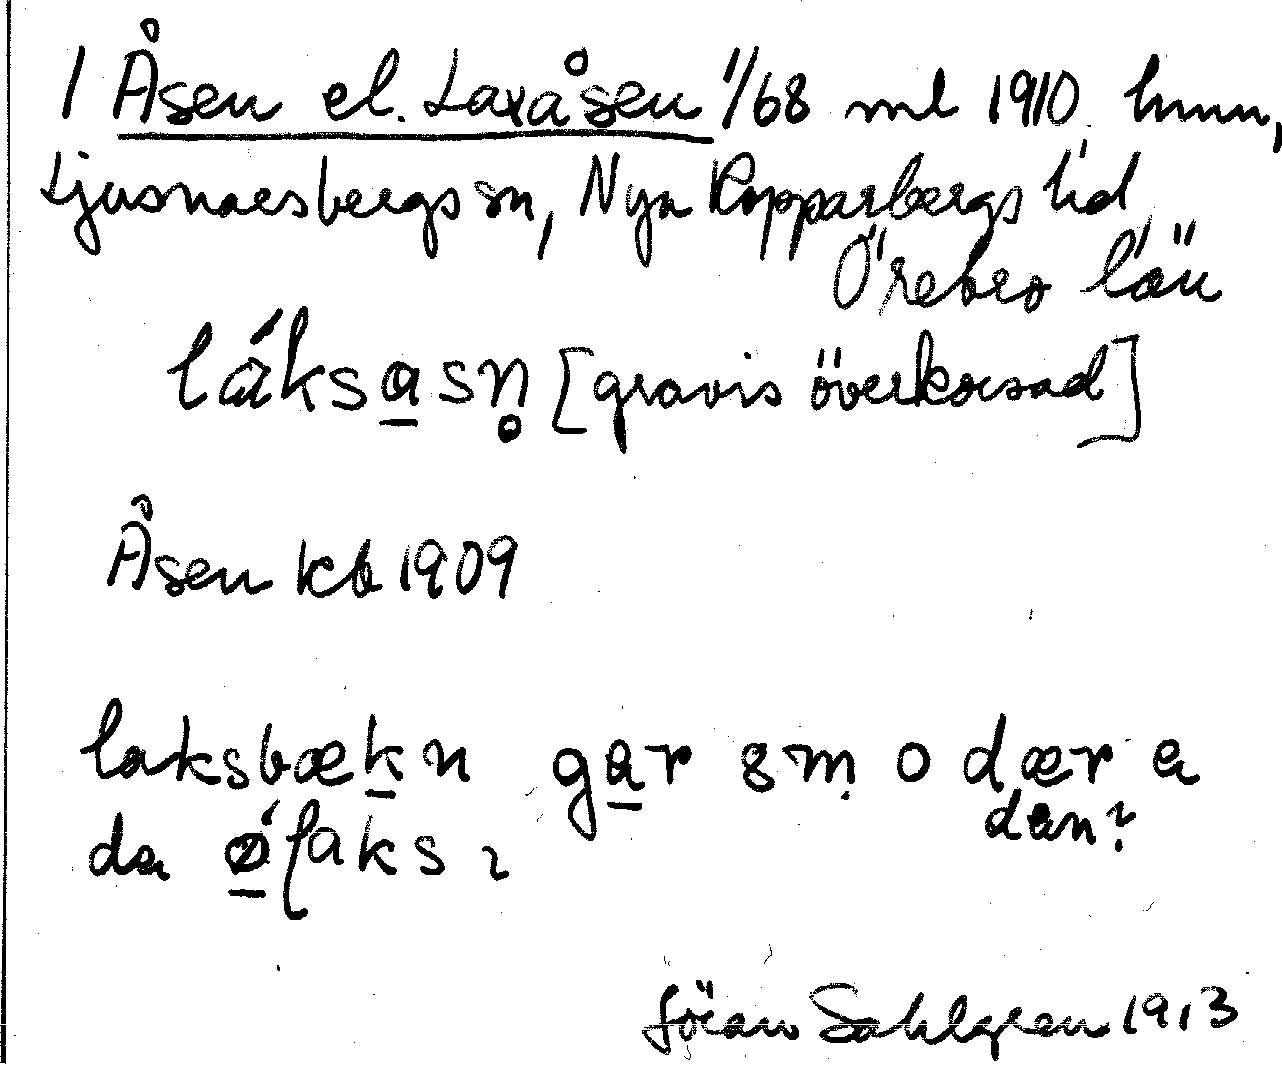 1 Åsen el. Laxåsen 1/68 ml 1910 hmm,
Ljusnarsbergs sn, Nya Kopparbergs hd
Örebro län
láksasn̥ [gravis överkorsad]
Åsen kb 1909
laksbækn gar o dær a
dæn?
da
Jöran Sahlgren 1913